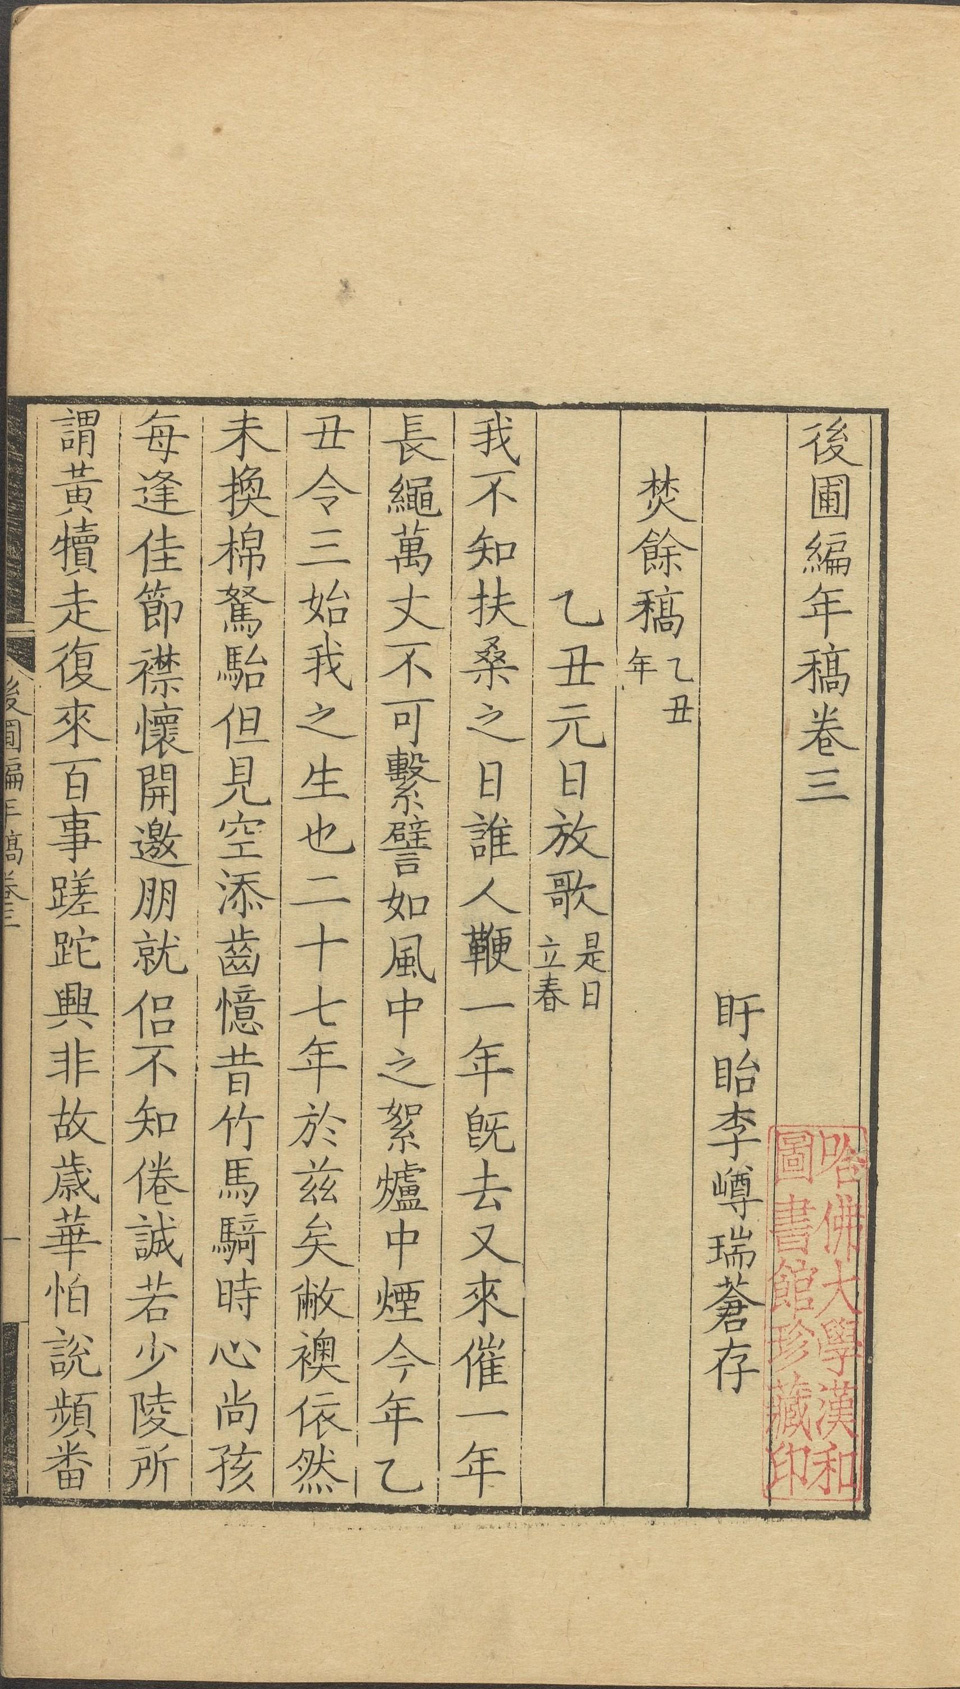 後圃編年稿卷三
盱眙李嶟瑞蒼存
焚餘稿乙丑年
乙丑元日放歌是日立春
我不知扶桑之日誰人鞭一年旣去又來催一年
長繩萬丈不可繫譬如風中之絮爐中煙今年乙
丑令三始我之生也二十七年於兹矣敝襖依然
未換棉駑駘但見空添齒憶昔竹馬騎時心尚孩
每逢佳節襟懷開邀朋就侶不知倦誠若少陵所
謂黃犢走復來百事蹉跎興非故歲華怕説頻番
後圃編年稿卷三
一
哈佛大學漢和
圖書館珍藏印